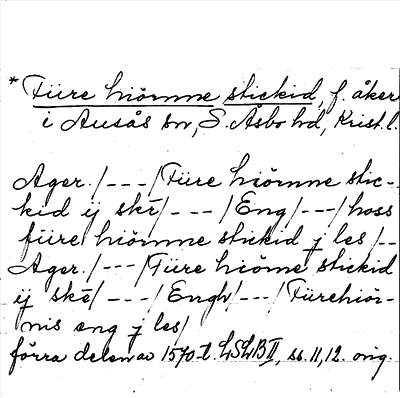 * Fiire hiörnne stickid, f. åker
i Ausås sn, S. Åsbo hd, Krist. l.
Ager /---/ Fiire hiörnne stic-
kid ij skē /---/ Eng /---/ hoss
fiire hiörnne stickid j les /--
Ager /---/ Fiire hiörne stickid
ij skē /---/ Engh /---/ Fiirehiör-
nis eng j les /
förra delen av 1570-t. LSLB II, ss. 11, 12. orig.